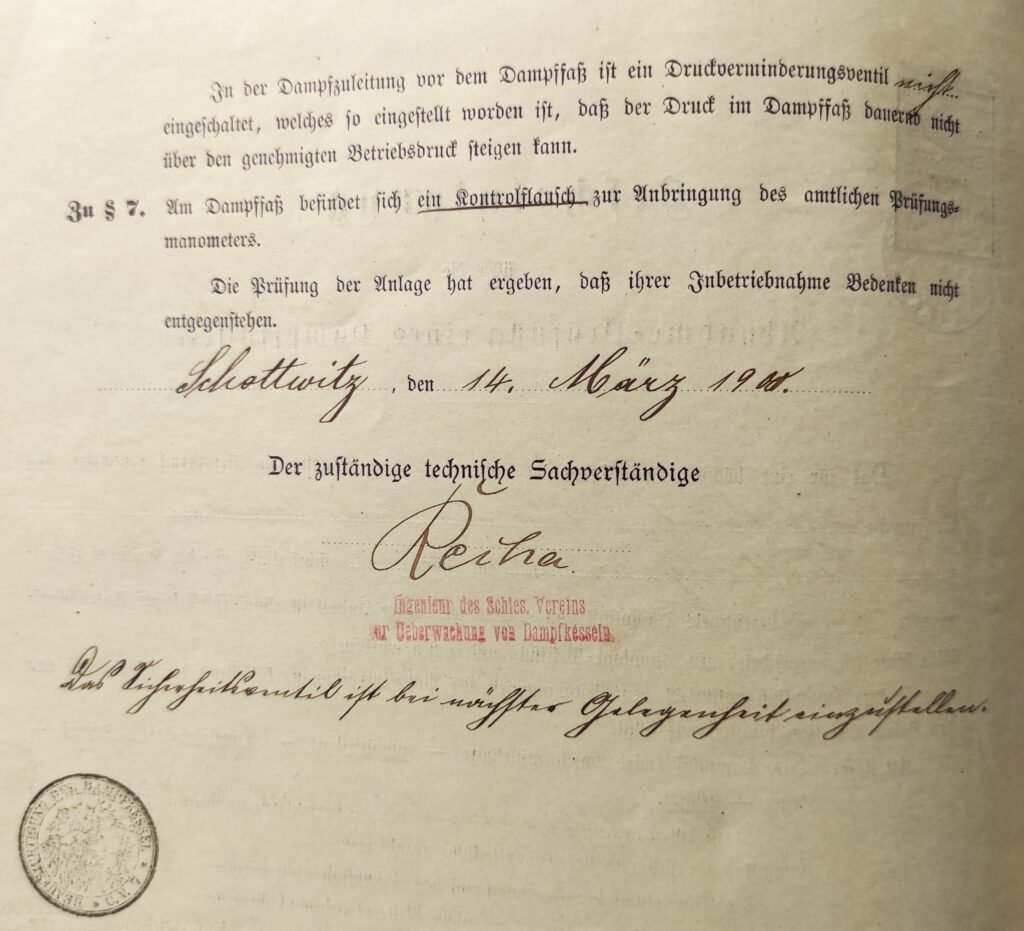 In der Dampfzuleitung vor dem Dampffaß ist ein Druckverminderungsventil nicht
eingeschaltet, welches so eingestellt worden ist, daß der Druck im Dampffaß dauernd nicht
über den genehmigten Betriebsdruck steigen kann.
Zu § 7. Am Dampffaß befindet sich ein Kontrolflansch zur Anbringung des amtlichen Prüfungs-
manometers.
Die Prüfung der Anlage hat ergeben, daß ihrer Inbetriebnahme Bedenken nicht
entgegenstehen.
Schottwitz, den 14. März 1900.
Der zuständige technische Sachverständige
Ingenieur des Schles. Vereins
zur Ueberwachung von Dampfkesseln.
Das Sicherheitsventil ist bei nächster Gelegenheit einzustellen.
BEAUFSICHTIGUNG DER DAMPFKESSEL